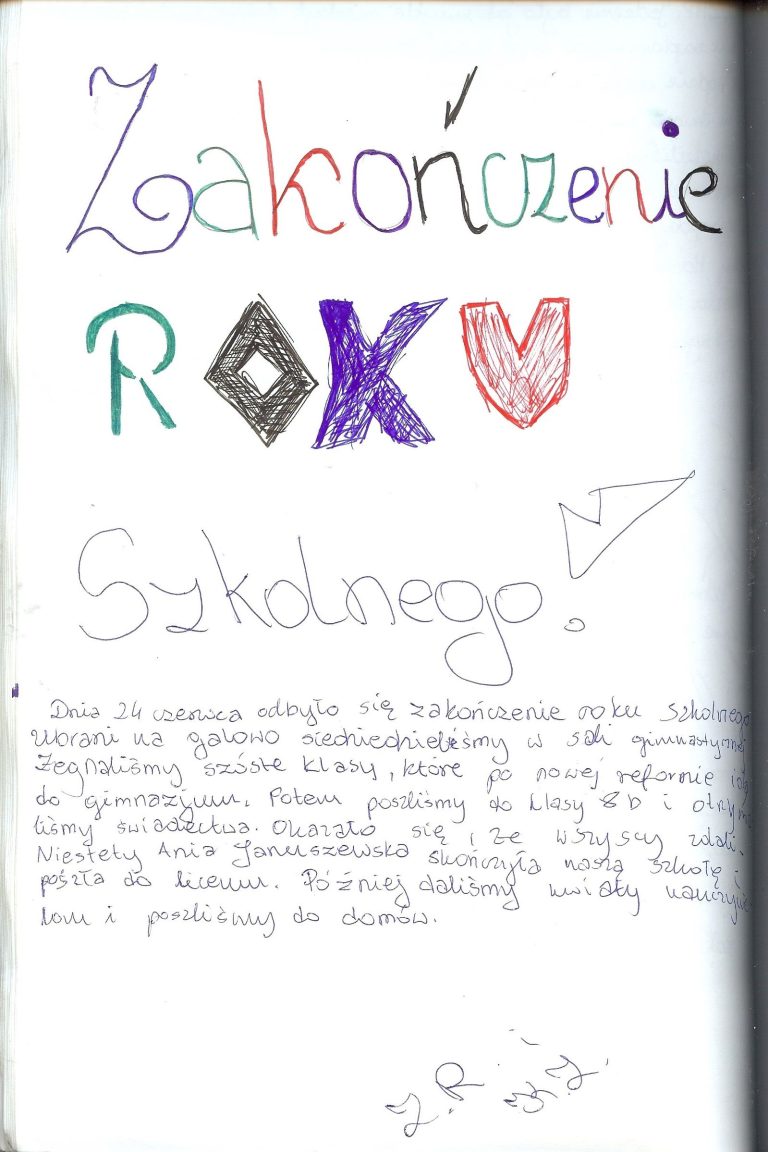 Zakończenie
ROKU
Szkolnego!
Dnia 24 czerwca odbyło się zakończenie roku szkolnego
Ubrani na galowo siedniedzieliśmy w sali gimnastycznej
Żegnaliśmy szóste klasy, które po nowej reformie idą
do gimnazjum. Potem poszliśmy do klasy 8b i otrzyma
liśmy świadectwa. Okazało się, że wszyscy zdali.
Niestety Ania Januszewska skończyła naszą szkołę i
poszła do liceum. Później daliśmy kwiaty nauczycie
lom i poszliśmy do domów.
J.R. i